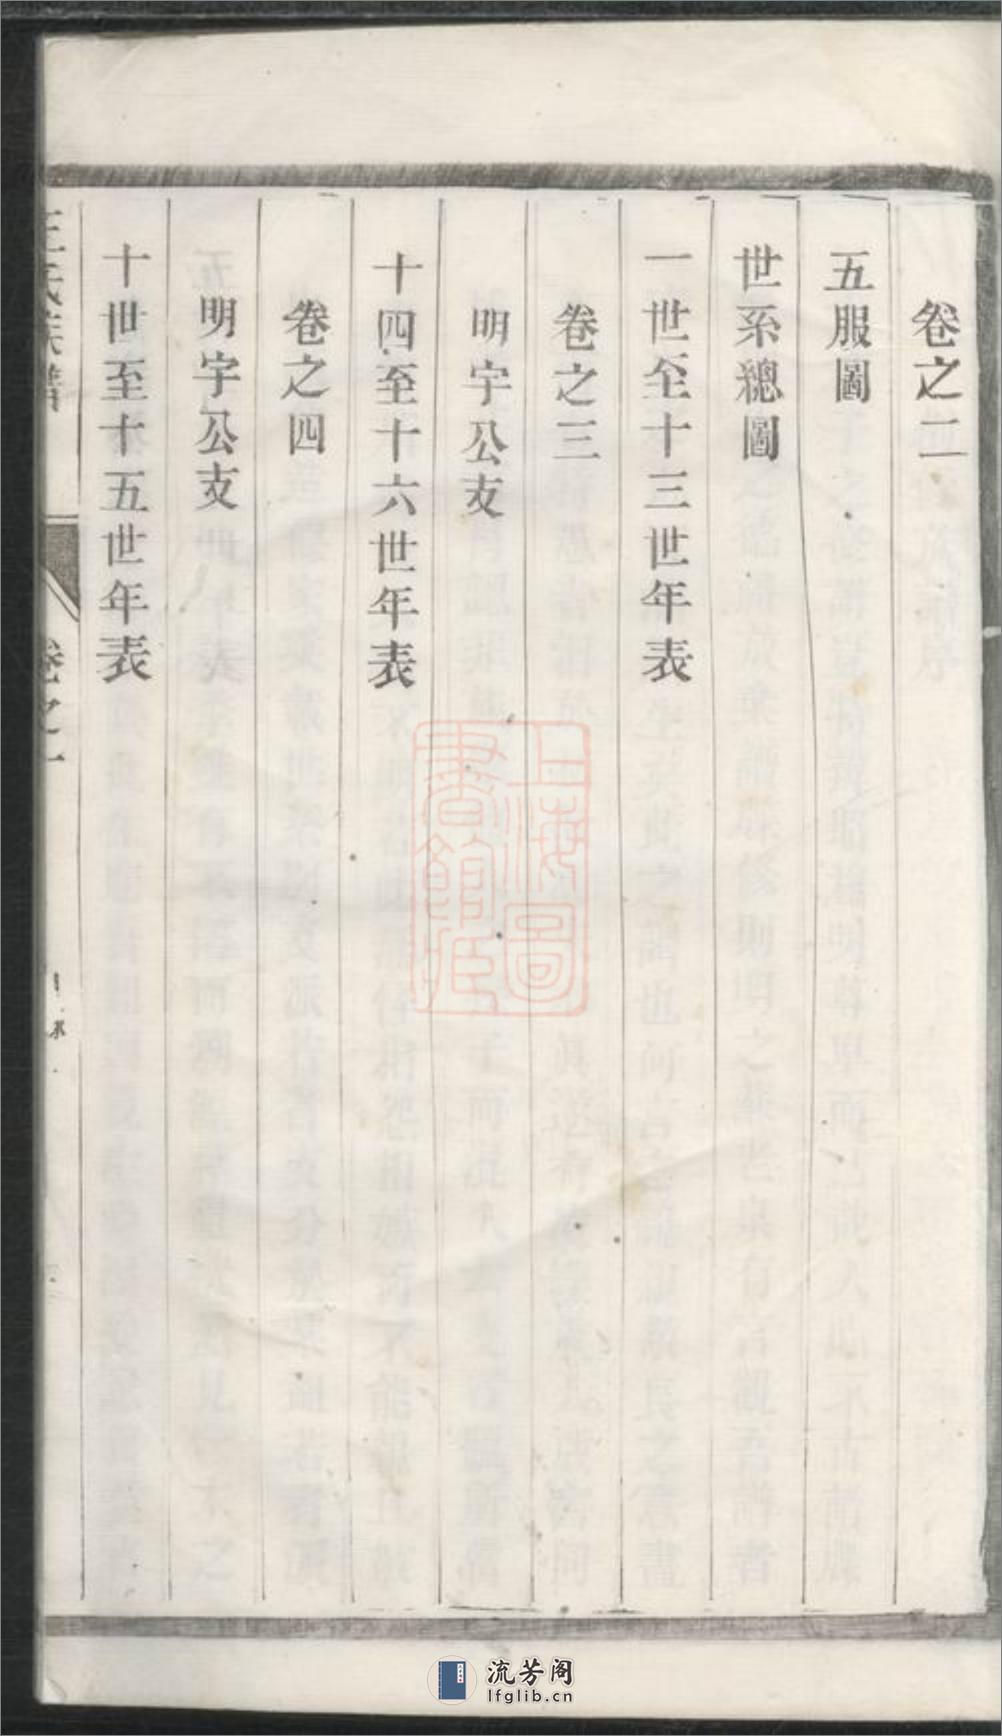 卷之二
五服圖
世系總圖
一世至十三世年表
卷之三
明宇公支
十四至十六世年表
卷之四
明宇公支
十世至十五世年表
王氏族譜
卷之一
上海圖書館藏
流芳阁
lfglib.cn